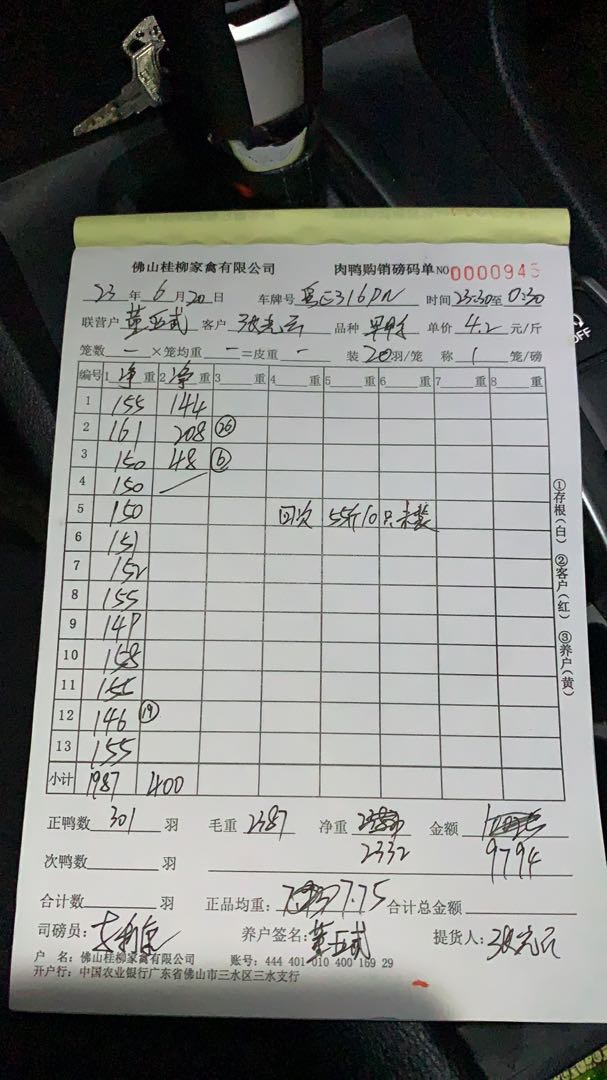 佛山桂柳家禽有限公司 肉鸭购销磅码单 NO 0000945
23 年 6 月 20 日 车牌号 粤E316DN 时间 23:30 至 0:30
联营户 董五武 客户 品种 单价 4.2 元/斤
笼数 一 ×笼均重 一 =皮重 一 装 20 羽/笼 称 1 笼/磅
编号 1 净 重 2 净 重 3 重 4 重 5 重 6 重 7 重 8 重
1 155 144
2 161 208 (26)
3 150 48 (6)
4 150
5 150 回次 55斤10只未装
6 151
7 152
8 155
9 147
10 158
11 155
12 146 (19)
13 155
小计 1987 400
①存根(白) ②客户(红) ③养户(黄)
正鸭数 301 羽 毛重 2387 净重 2332 金额 9794
次鸭数 羽
合计数 羽 正品均重: 7.75 合计总金额
司磅员: 养户签名: 董五武 提货人:
户 名: 佛山桂柳家禽有限公司 账号: 444 401 010 400 169 29
开户行: 中国农业银行广东省佛山市三水区三水支行
OFF